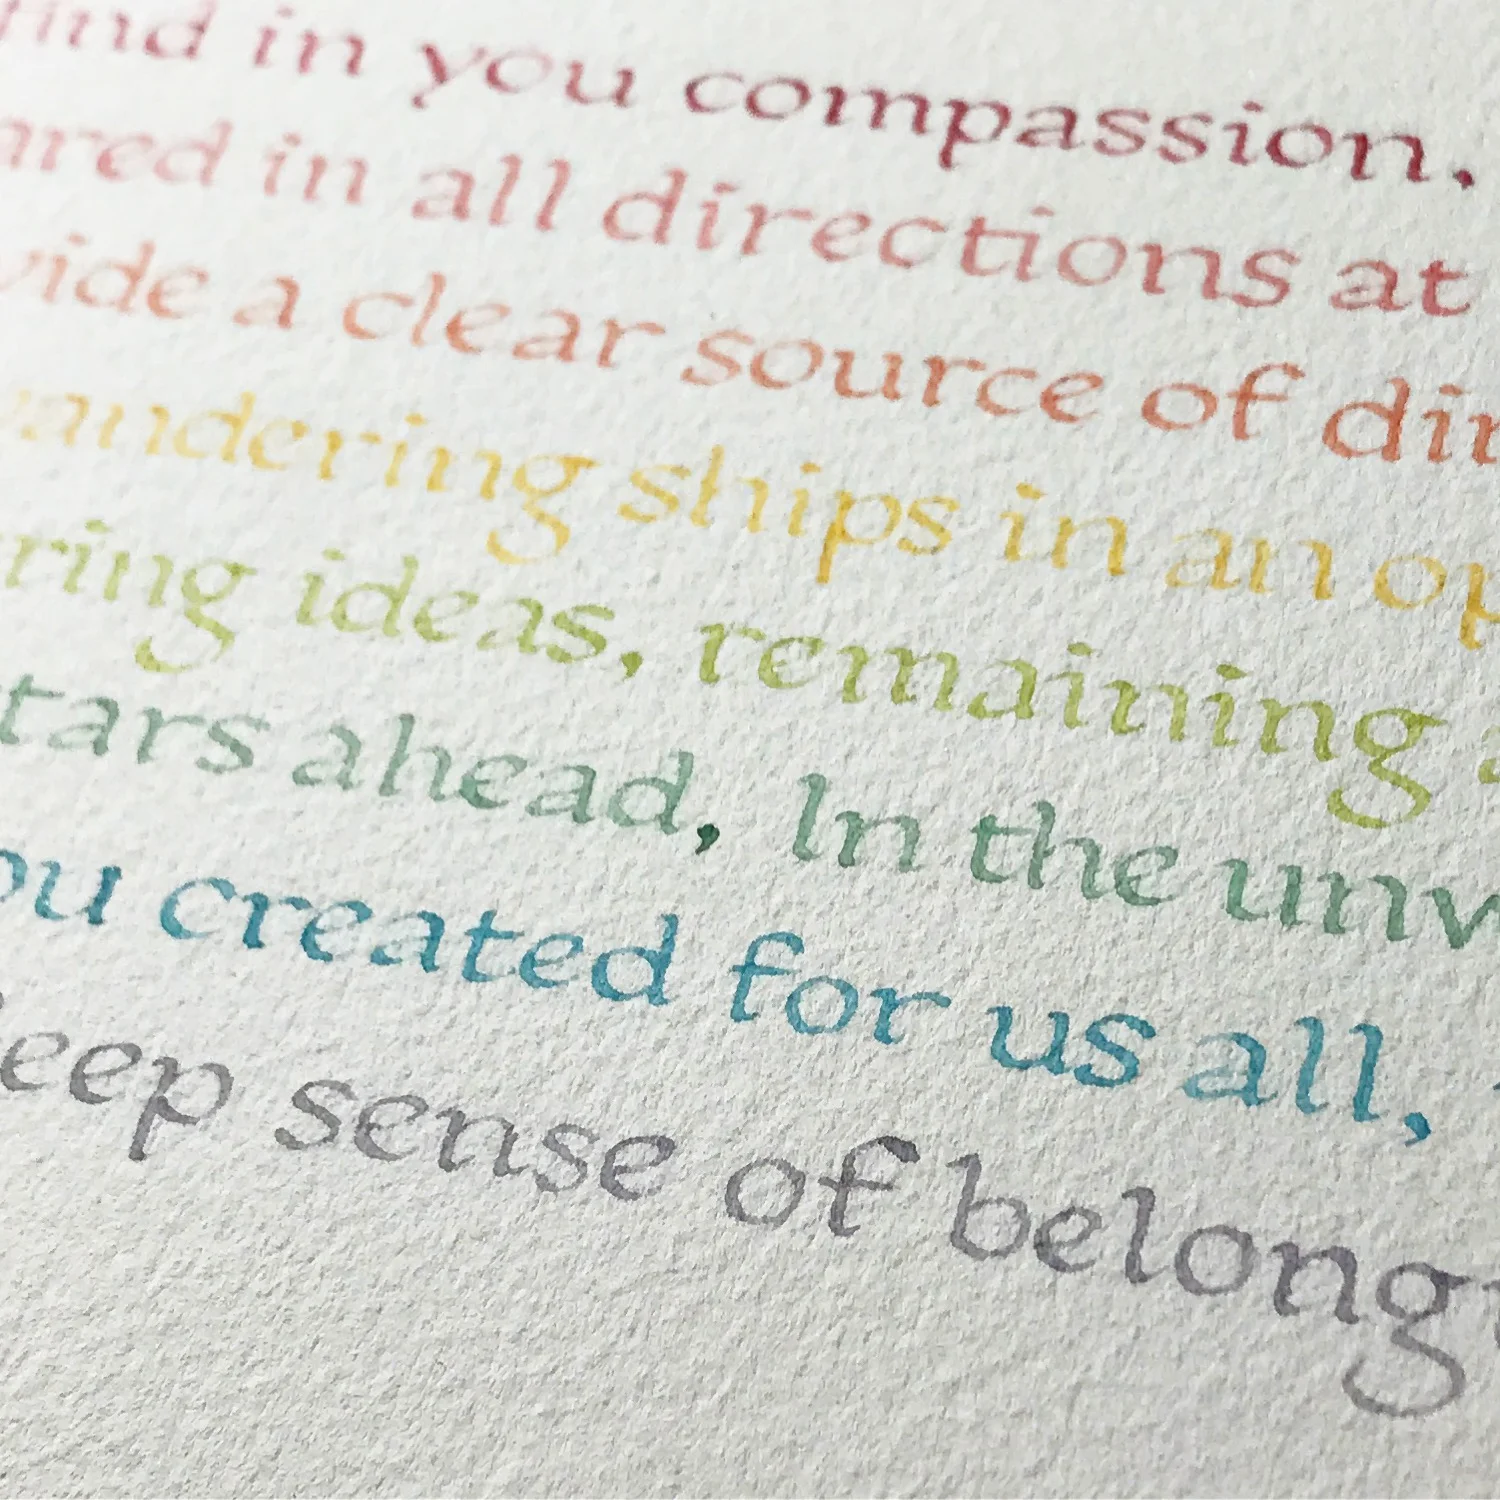 find in you compassion,
ared in all directions at
vide a clear source of dir
wandering ships in an op
ring ideas, remaining
tars ahead, In the unw
ou created for us all,
eep sense of belong